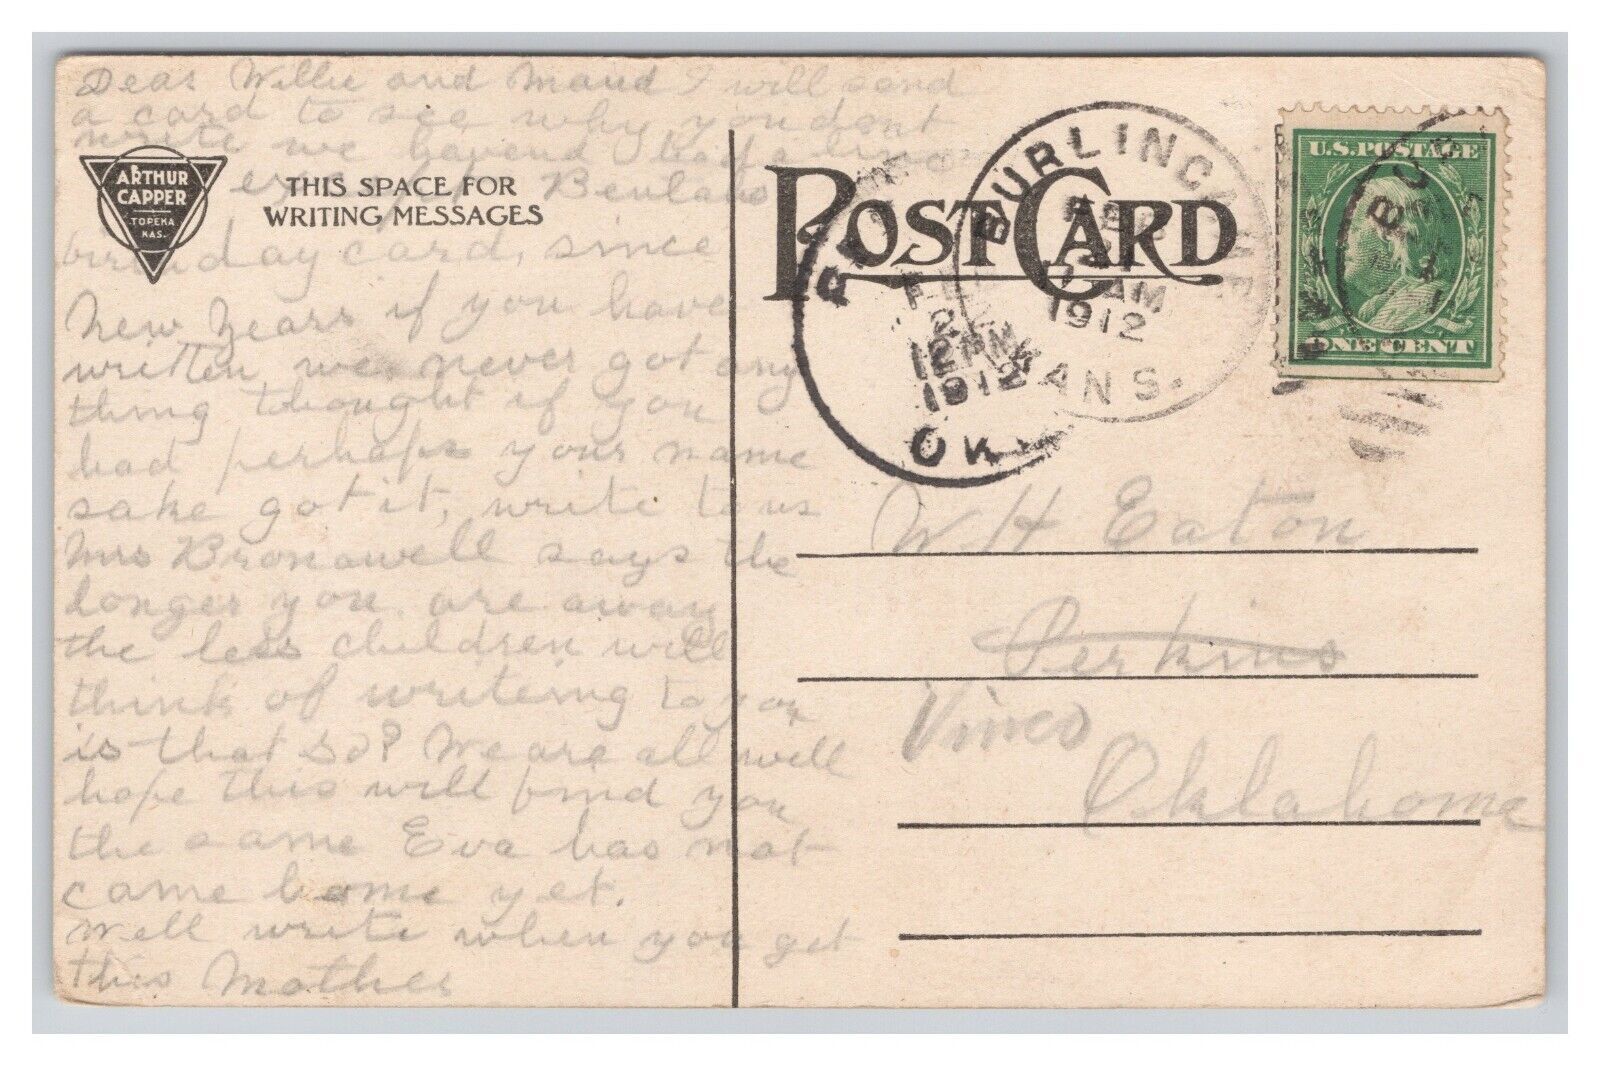 Dear Willie and Maud I will send
a card to see why you dont
write we havend had a line
except Beulahs
birthday card, since
New Years if you have
written we never got any
thing thought if you
had perhaps your name
sake got it, write to us
Mrs Bronawell says the
longer you are away
the less children will
think of writeing to you
is that so? We are all well
hope this will find you
the same Eva has not
came home yet.
Well write when you get
this Mother
ARTHUR
CAPPER
TOPEKA
KAS.
THIS SPACE FOR
WRITING MESSAGES
POST CARD
BURLINGAME
FEB
21
AM
1912
KANS.
12 PM
1912
OK
U.S. POSTAGE
ONE CENT
W H Eaton
Perkins
Vinco
Oklahoma